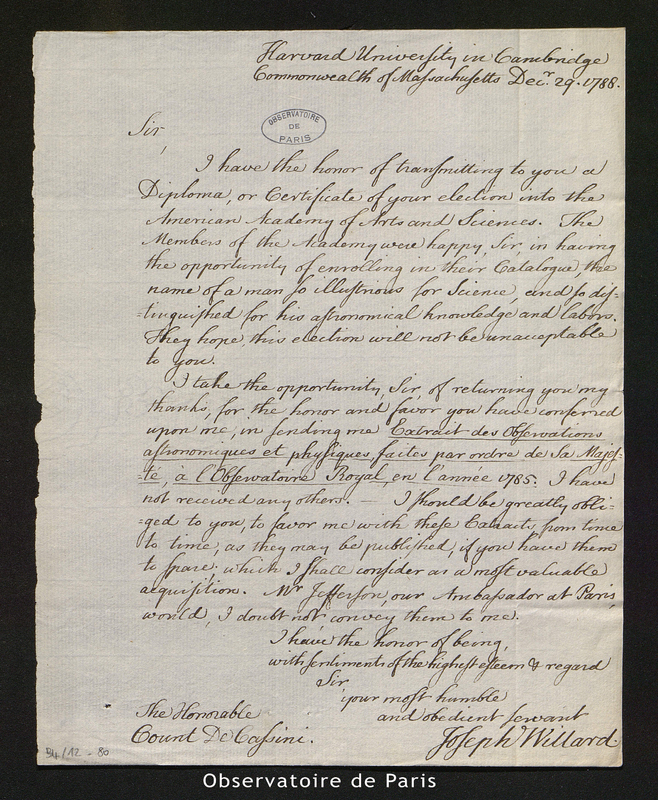 Harvard University in Cambridge
Commonwealth of Massachusetts Decr. 29. 1788.
OBSERVATOIRE
DE
PARIS
Sir,
I have the honor of transmitting to you a
Diploma, or Certificate of your election into the
American Academy of Arts and Sciences. The
Members of the Academy were happy, Sir, in having
the opportunity of enrolling in their Catalogue, the
name of a man so illustrious for Science, and so dis-
=tinguished for his astronomical knowledge and labors.
They hope, this election will not be unacceptable
to you.
I take the opportunity, Sir, of returning you my
thanks, for the honor and favor you have conferred
upon me, in sending me Extrait des Observations
astronomiques et physiques, faites par ordre de Sa Majes-
=té, à l'Observatoire Royal, en l'année 1785. I have
not received any others. — I should be greatly obli-
=ged to you, to favor me with these Extraits, from time
to time, as they may be published, if you have them
to spare; which I shall consider as a most valuable
acquisition. Mr Jefferson, our Ambassador at Paris,
would, I doubt not convey them to me.
I have the honor of being,
with sentiments of the highest esteem & regard
Sir,
your most humble
and obedient servant
Joseph Willard
The Honorable
Count De Cassini.
B4/12 - 80
Observatoire de Paris